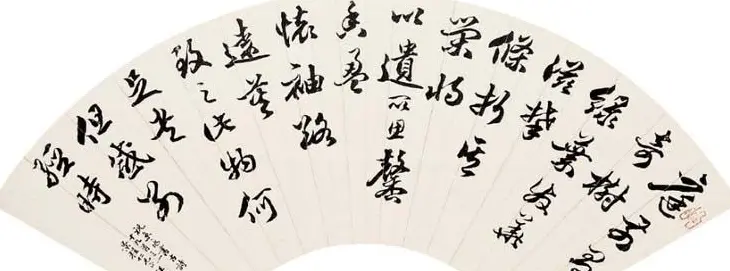 庭前有
奇樹
綠葉發華
滋攀
條折其
榮將
以遺所思馨
香盈
懷袖路
遠莫
致之此物何
足
但感別
經時